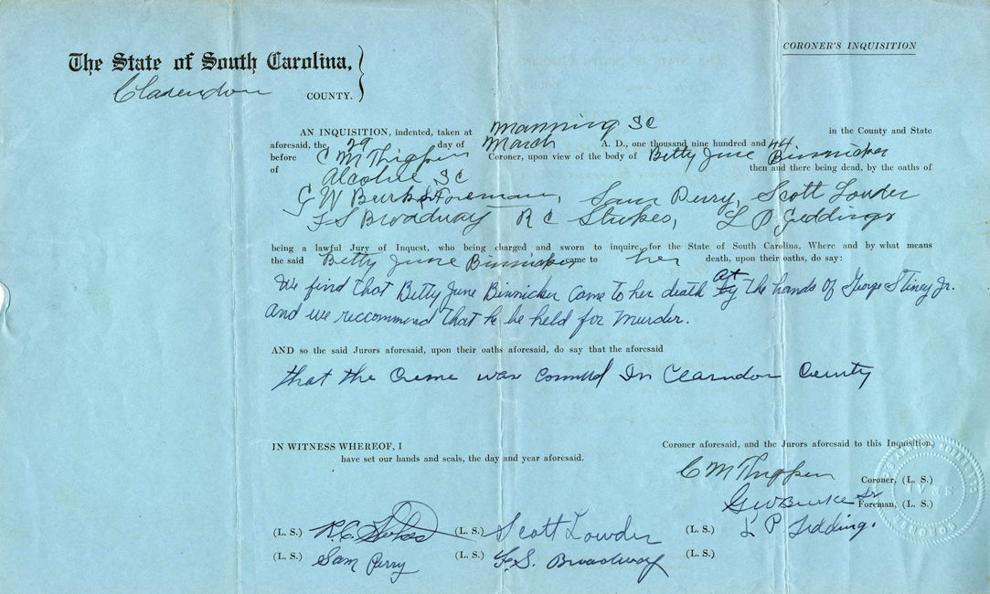 CORONER'S INQUISITION
The State of South Carolina,
Clarendon COUNTY.
AN INQUISITION, indented, taken at Manning SC in the County and State
aforesaid, the 29 day of March A. D., one thousand nine hundred and 44
before C M Thigpen Coroner, upon view of the body of Betty June Binnicker
of Alcolu SC then and there being dead, by the oaths of
G W Burke Foreman, Sam Perry, Scott Lowder
F S Broadway R C Stukes, L P Giddings
being a lawful Jury of Inquest, who being charged and sworn to inquire, for the State of South Carolina, Where and by what means
the said Betty June Binnicker came to her death, upon their oaths, do say:
We find that Betty June Binnicker came to her death at the hands of George Stiney Jr.
And we reccommend that he be held for Murder.
AND so the said Jurors aforesaid, upon their oaths aforesaid, do say that the aforesaid
that the Crime was In Clarndon County
IN WITNESS WHEREOF, I Coroner aforesaid, and the Jurors aforesaid to this Inquisition,
have set our hands and seals, the day and year aforesaid.
C M Thigpen Coroner, (L. S.)
G W Burke Sr Foreman, (L. S.)
(L. S.) R. C. Stukes (L. S.) Scott Lowder (L. S.) L P Gidding.
(L. S.) Sam Perry (L. S.) F. S. Broadway (L. S.)